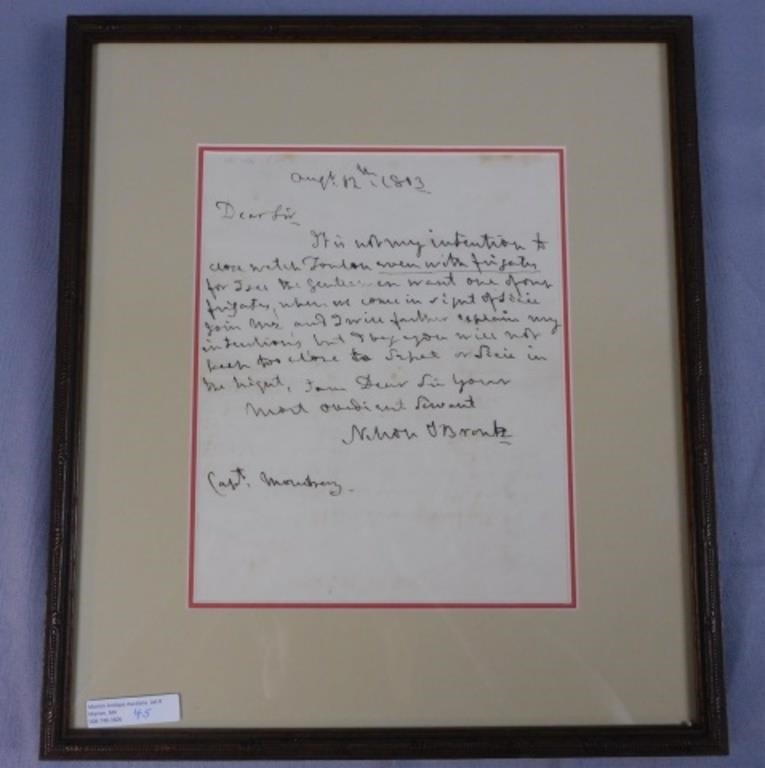 Augt. 12th. 1803
Dear Sir
It is not my intention to
close watch Toulon even with frigates
for I see the Gentlemen want one of our
frigates, when we come in sight of Sicie
Join me, and I will farther explain my
intentions, but I beg you will not
keep too close to Sepet or Sicie in
the night, I am Dear Sir Your
most obedient Servant
Nelson & Bronte
Capt.
Marion, MA
45